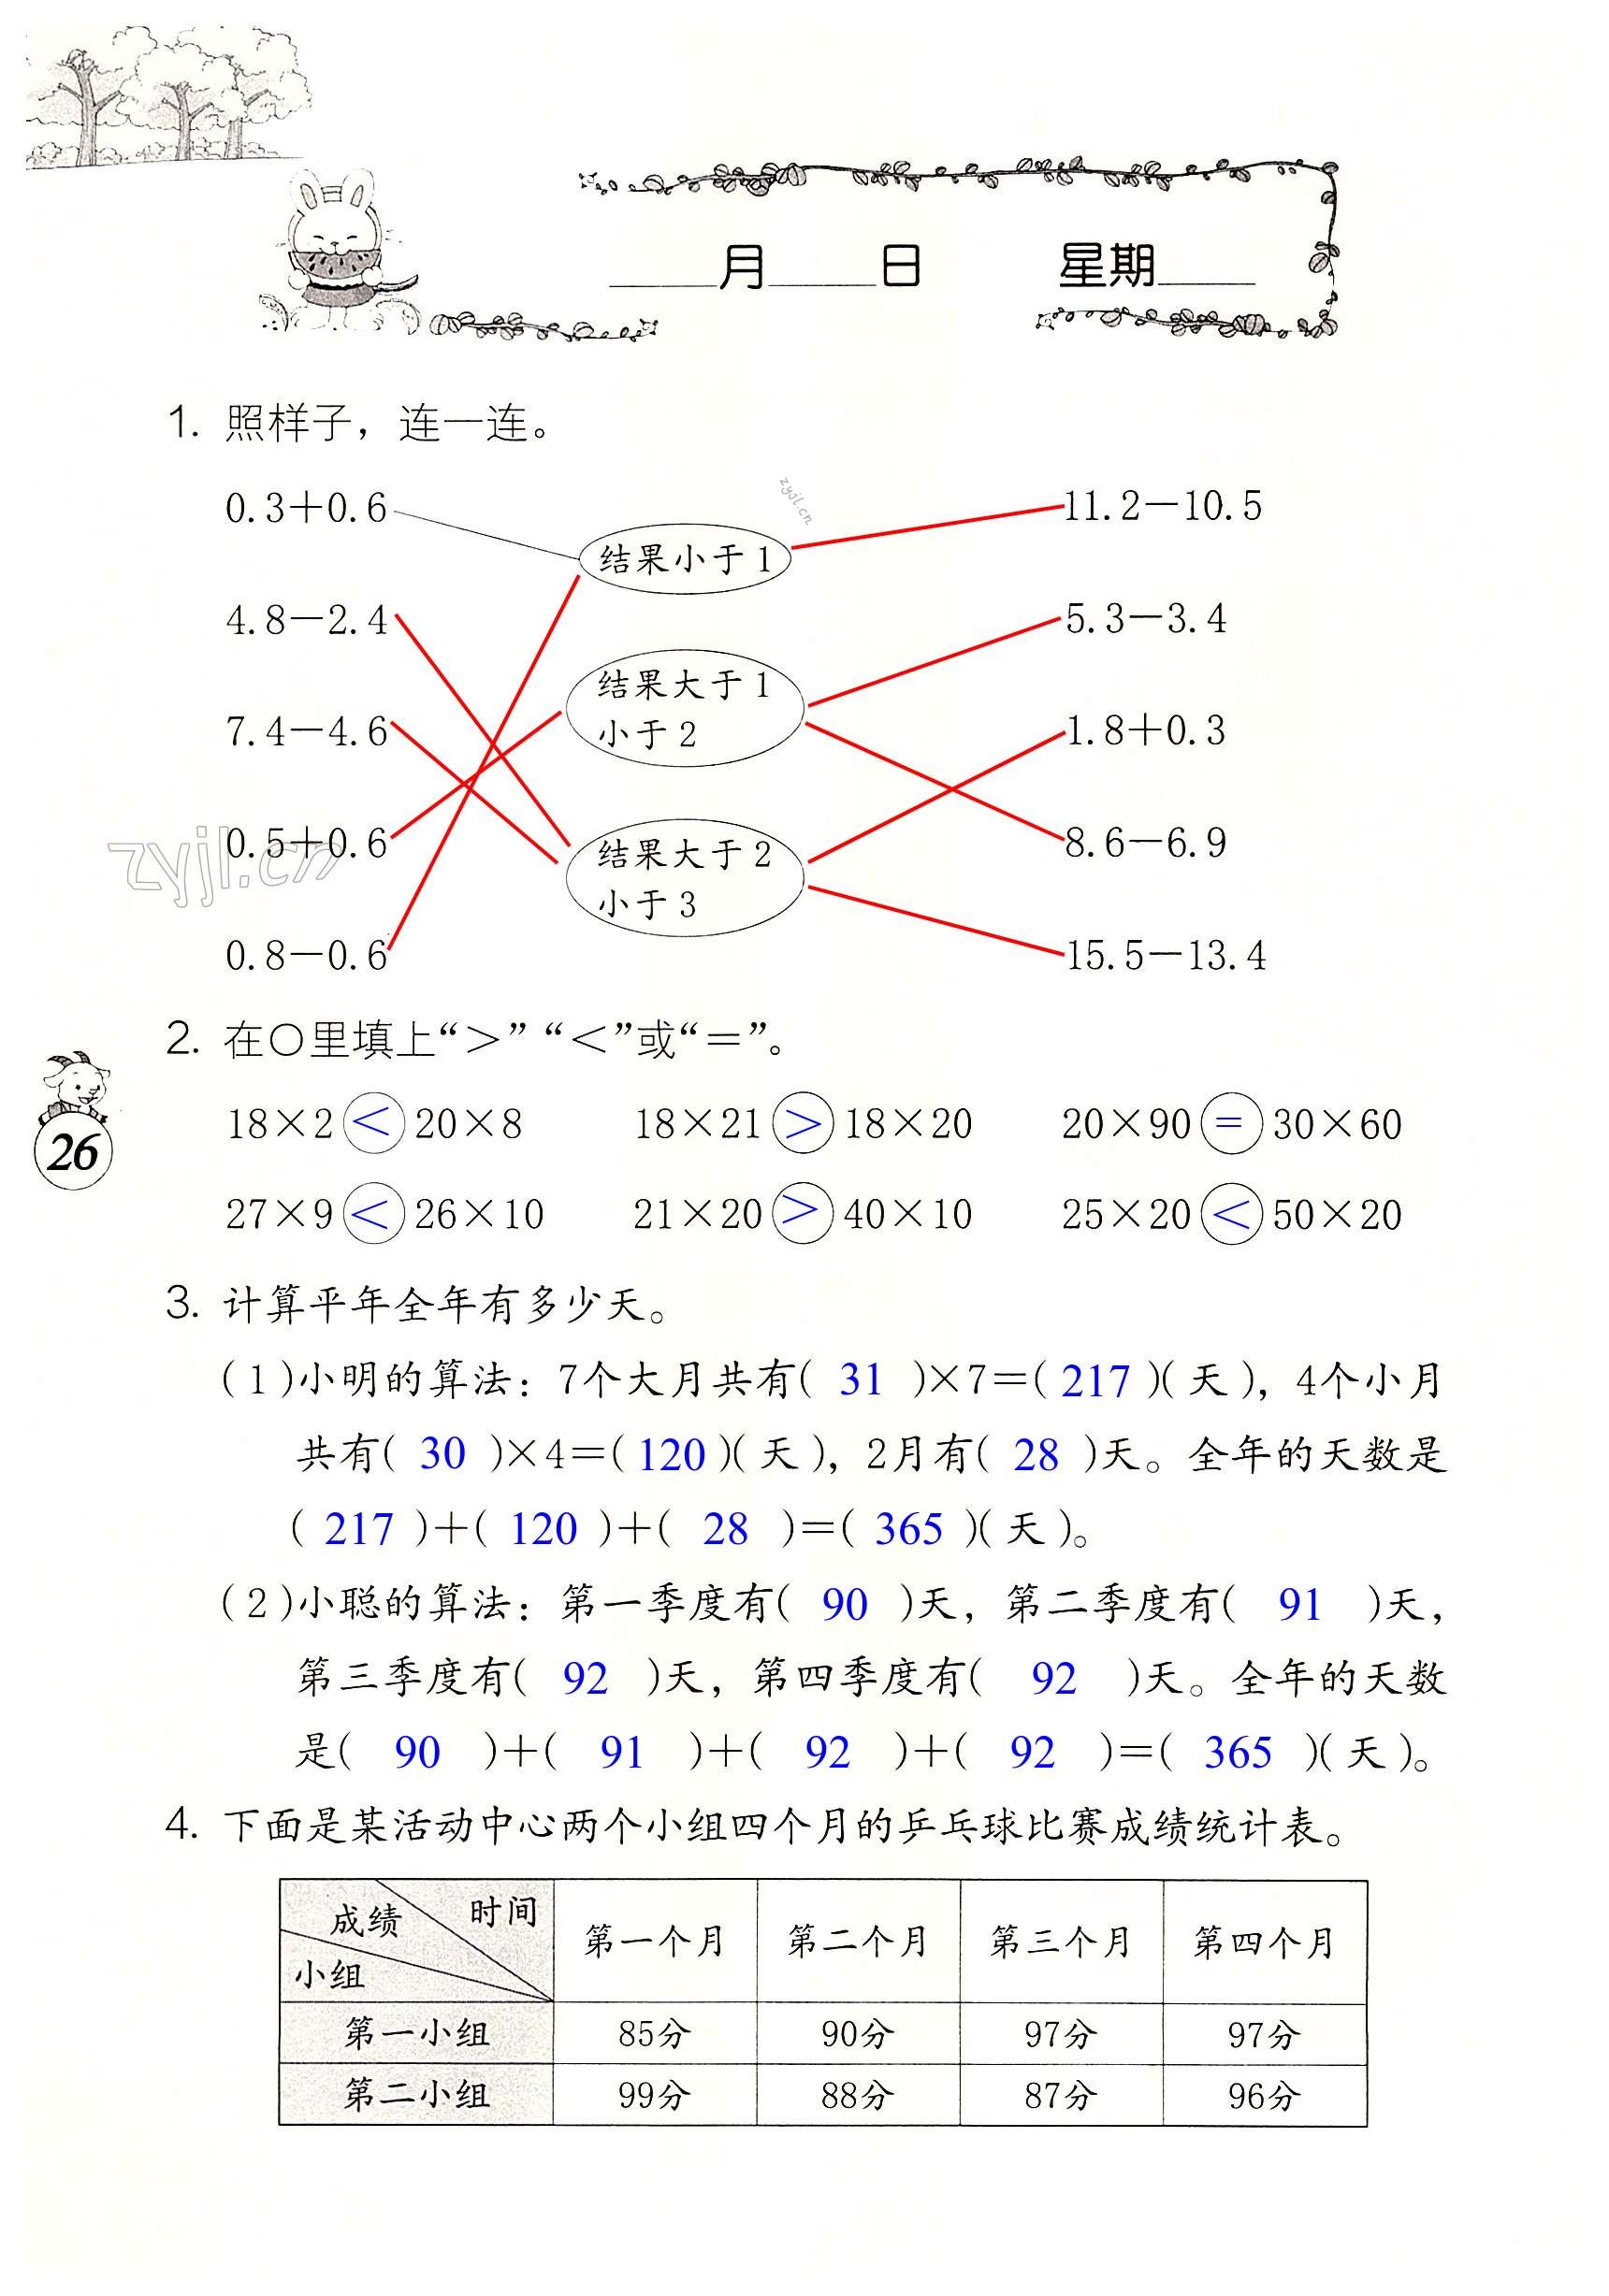 ____月____日 星期____
1. 照样子，连一连。
zyjl.cn
0.3＋0.6 11.2－10.5
结果小于1
4.8－2.4 5.3－3.4
结果大于1
小于2
7.4－4.6 1.8＋0.3
0.5＋0.6 8.6－6.9
zyjl.cn
结果大于2
小于3
0.8－0.6 15.5－13.4
2. 在○里填上“＞”“＜”或“＝”。
18×2＜20×8 18×21＞18×20 20×90＝30×60
26
27×9＜26×10 21×20＞40×10 25×20＜50×20
3. 计算平年全年有多少天。
(1)小明的算法：7个大月共有( 31 )×7＝( 217 )(天)，4个小月
共有( 30 )×4＝( 120 )(天)，2月有( 28 )天。全年的天数是
( 217 )＋( 120 )＋( 28 )＝( 365 )(天)。
(2)小聪的算法：第一季度有( 90 )天，第二季度有( 91 )天，
第三季度有( 92 )天，第四季度有( 92 )天。全年的天数
是( 90 )＋( 91 )＋( 92 )＋( 92 )＝( 365 )(天)。
4. 下面是某活动中心两个小组四个月的乒乓球比赛成绩统计表。
成绩 时间 小组 第一个月 第二个月 第三个月 第四个月
第一小组 85分 90分 97分 97分
第二小组 99分 88分 87分 96分